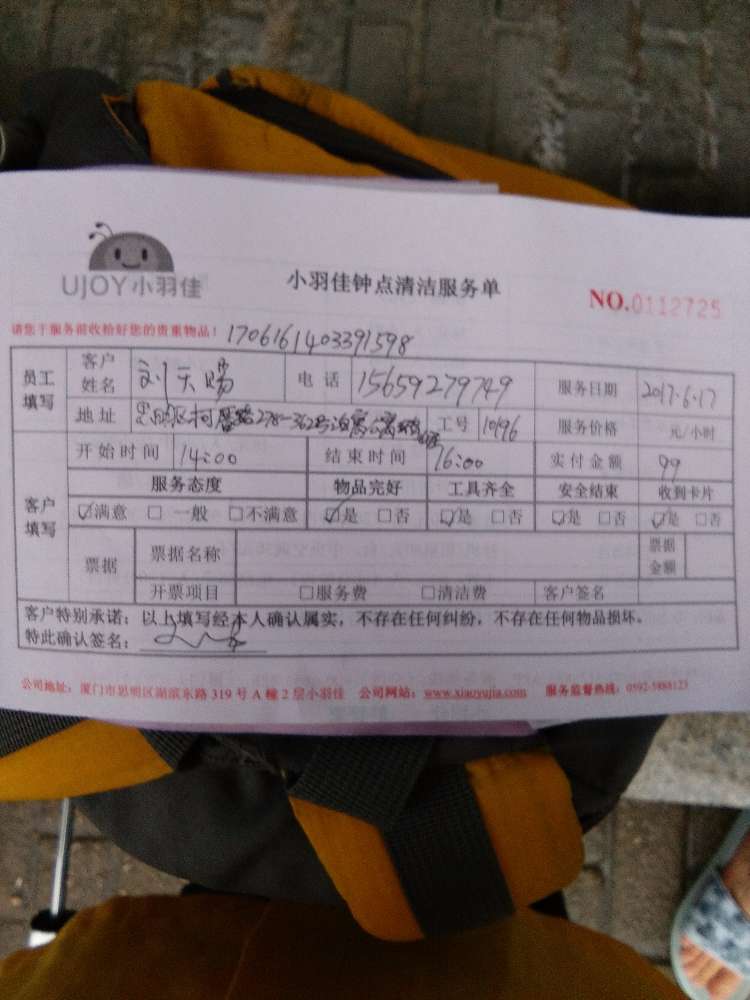 UJOY小羽佳
小羽佳钟点清洁服务单
NO.0112725
请您于服务前收拾好您的贵重物品！ 1706161403391598
员工填写 客户姓名 刘天赐 电话 15659279749 服务日期 2017.6.17
地址 思明区柯厝路278-362号 工号 10196 服务价格 元/小时
客户填写 开始时间 14:00 结束时间 16:00 实付金额 99
服务态度 物品完好 工具齐全 安全结束 收到卡片
☑满意 □一般 □不满意 ☑是 □否 ☑是 □否 ☑是 □否 ☑是 □否
票据 票据名称 票据金额
开票项目 □服务费 □清洁费 客户签名
客户特别承诺：以上填写经本人确认属实，不存在任何纠纷，不存在任何物品损坏。
特此确认签名：
公司地址：厦门市思明区湖滨东路319号A幢2层小羽佳 公司网站：www.xiaoyujia.com 服务监督热线：0592-5888123